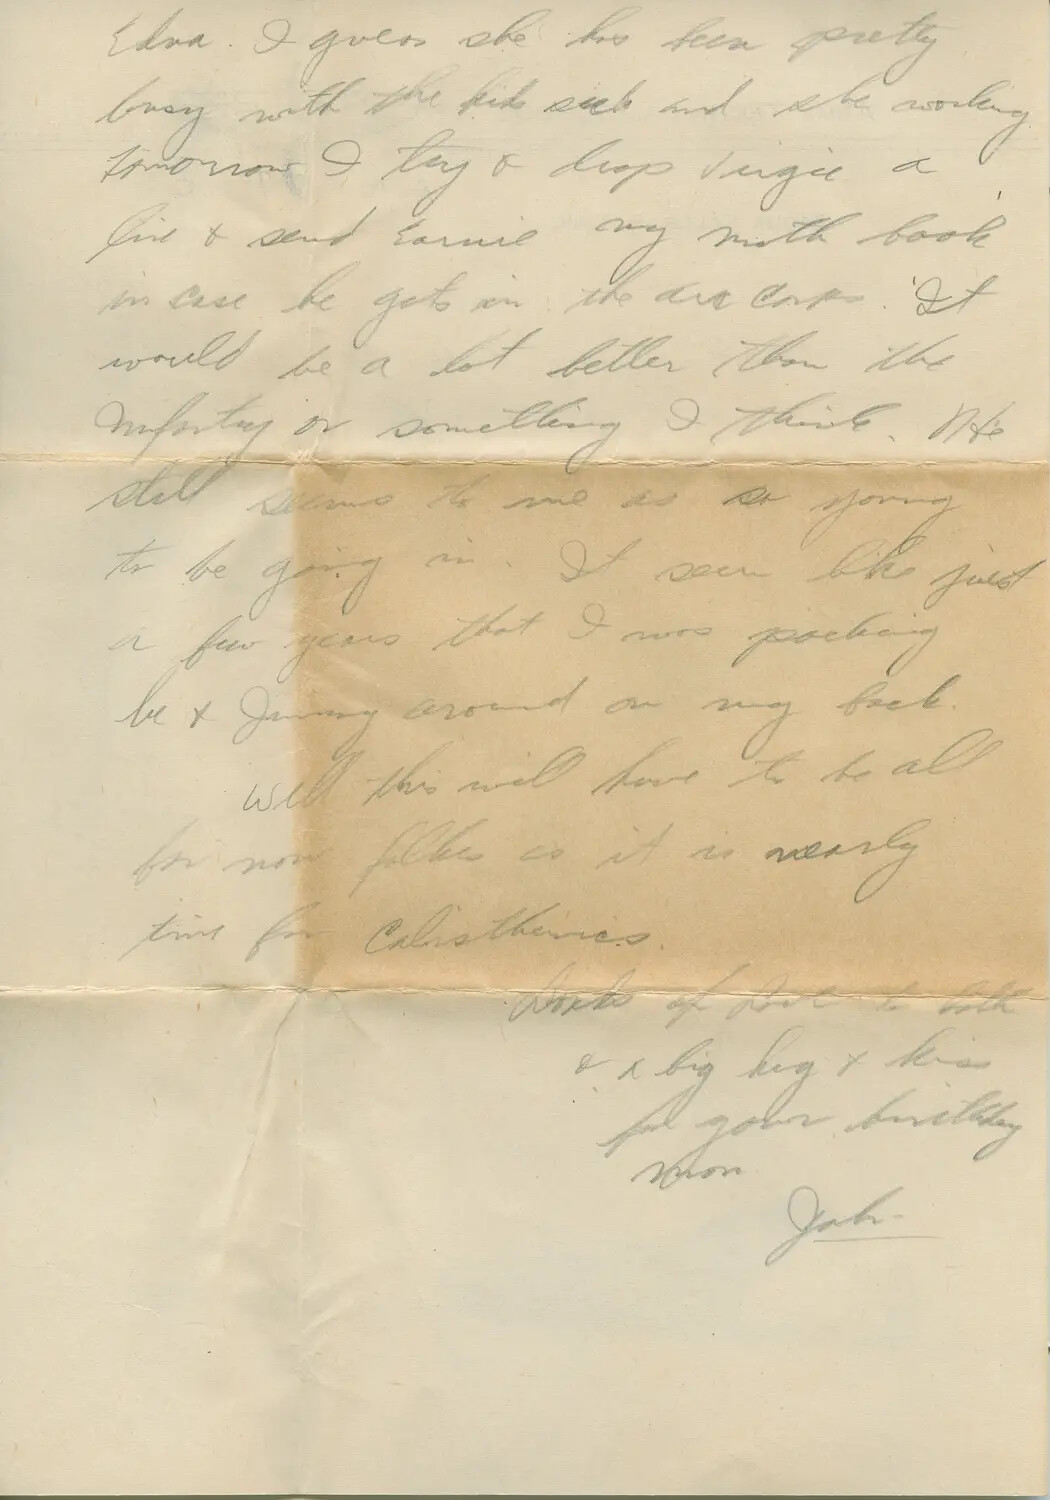 Edna. I guess she has been pretty
busy with the kids sick and she working
tomorrow I try & drop Virgie a
line & send Earnie my math book
in case he gets in the air corps. It
would be a lot better than the
Infantry or something I think. He
still seems to me as so young
to be going in. It seem like just
a few years that I was packing
he & Jimmy around on my back.
Well this will have to be all
for now folkes as it is nearly
time for Calisthenics.
Loads of Love to both
& a big hug & kiss
for your birthday
mom
John